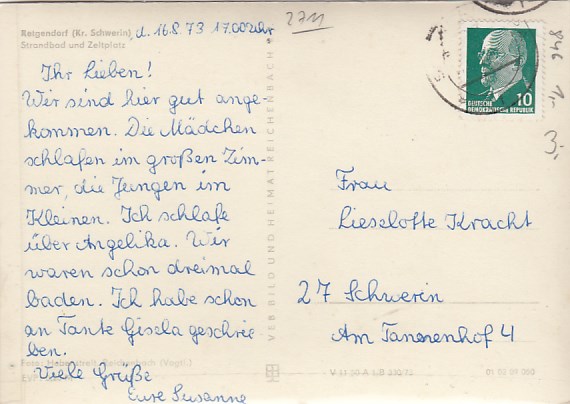 Retgendorf (Kr. Schwerin), d. 16.8.73 17.00 Uhr
Strandbad und Zeltplatz
2711
Ihr Lieben!
Wir sind hier gut ange-
kommen. Die Mädchen
schlafen im großen Zim-
mer, die Jungen im
Kleinen. Ich schlafe
über Angelika. Wir
waren schon dreimal
baden. Ich habe schon
an Tante Gisela geschrie
ben.
Viele Grüße
Eure Susanne
VEB BILD UND HEIMAT REICHENBACH
10
DEUTSCHE
DEMOKRATISCHE REPUBLIK
846 1,-
3,-
Frau
Lieselotte Kracht
27 Schwerin
Am Tannenhof 4